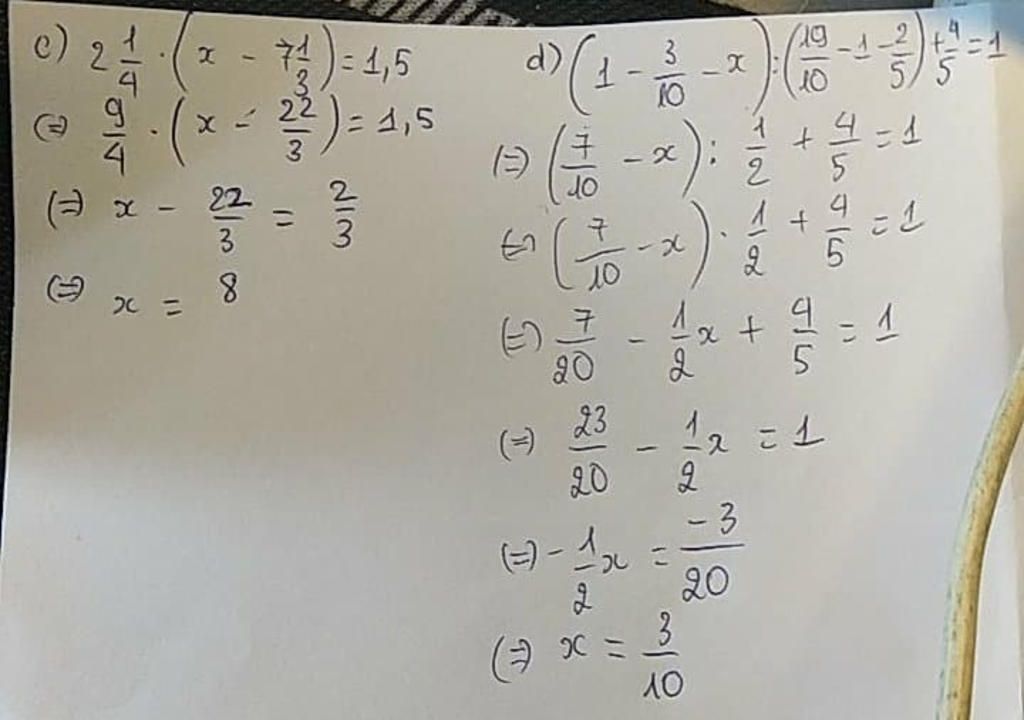 c) 2 1/4 . (x - 7 1/3) = 1,5
(=) 9/4 . (x - 22/3) = 1,5
(=) x - 22/3 = 2/3
(=) x = 8
d) (1 - 3/10 - x) : (19/10 - 1 - 2/5) + 4/5 = 1
(=) (7/10 - x) : 1/2 + 4/5 = 1
(=) (7/10 - x) . 1/2 + 4/5 = 1
(=) 7/20 - 1/2 x + 4/5 = 1
(=) 23/20 - 1/2 x = 1
(=) - 1/2 x = -3/20
(=) x = 3/10